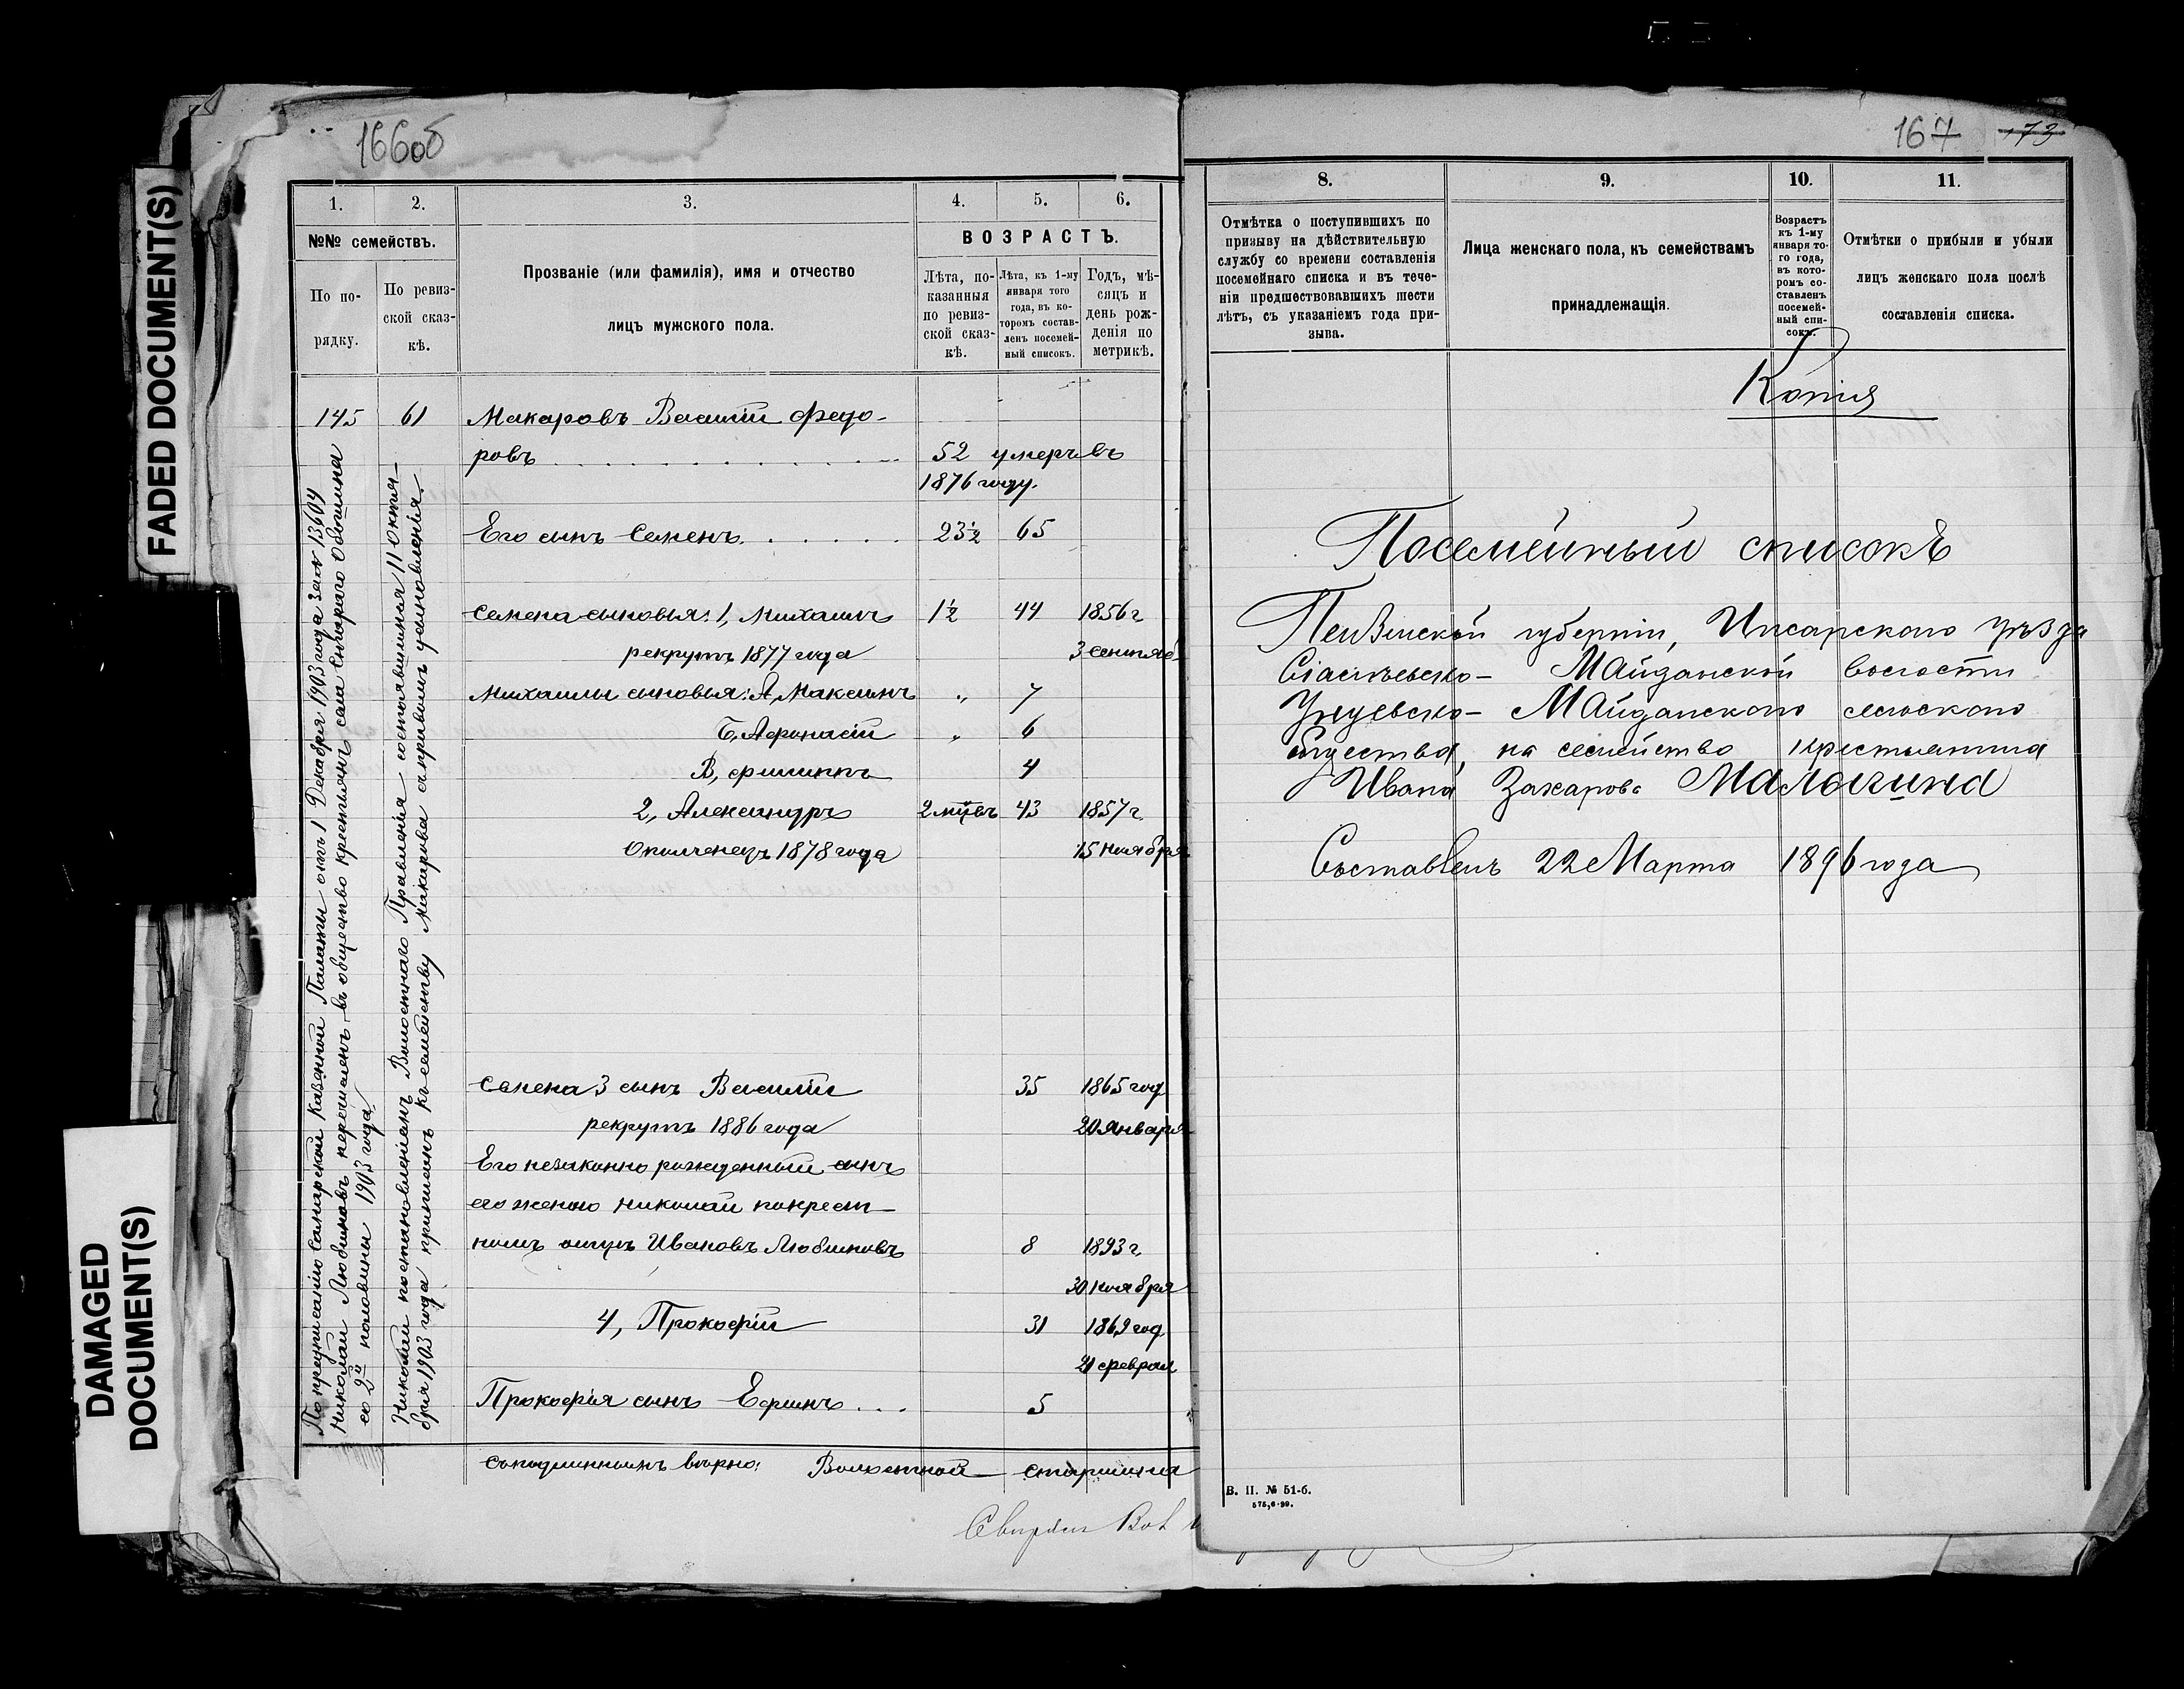 FADED DOCUMENT(S)
DAMAGED
DOCUMENT(S)
166об
1. 2. 3. 4. 5. 6.
№№ семействъ.
По по-
рядку.
По ревиз-
ской сказ-
кѣ.
Прозваніе (или фамилія), имя и отчество
лицъ мужского пола.
ВОЗРАСТЪ.
Лѣта, по-
казанныя
по ревиз-
ской сказ-
кѣ.
Лѣта, къ 1-му
января того
года, въ ко-
торомъ состав-
ленъ посемей-
ный списокъ.
Годъ, мѣ-
сяцъ и
день рож-
денія по
метрикѣ.
145 61 Макаровъ Василій Федо-
ровъ 52 умеръ въ
1876 году.
Его сынъ Семенъ 23½ 65
Семена сыновья: 1, Михаилъ 1½ 44 1856 г.
рекрутъ 1877 года 3 Сентяб
Михаилы сыновья: А, Максимъ " 7
Б, Афонасій " 6
В, Филиппъ 4
2, Александръ 2 мѣсъ 43 1857 г.
Ополченецъ 1878 года 15 ноября
Семена 3 сынъ Василій 35 1865 год
рекрутъ 1886 года 20 Января
Его незаконно рожденный сынъ
его женою Николай по крест-
номъ отцѣ Ивановъ Любимовъ 8 1893 г.
30 ноября
4, Прокофій 31 1869 год
21 феврал
Прокофія сынъ Ефимъ 5
Съ подлиннымъ вѣрно: Волостной старшина
По предписанію Самарской Казенной Палаты отъ 1 Декабря 1903 года за № 13604
Николай Любимовъ перечисленъ въ общество крестьянъ села Стараго
со 2й половины 1903 года
Николай постановленіемъ Волостного Правленія состоявшимся 11 Октя-
бря 1903 года приписанъ къ семейству Макарова съ правомъ усыновленія.
167 173
8. 9. 10. 11.
Отмѣтка о поступившихъ по
призыву на дѣйствительную
службу со времени составленія
посемейнаго списка и въ тече-
ніи предшествовавшихъ шести
лѣтъ, съ указаніемъ года при-
зыва.
Лица женскаго пола, къ семействамъ
принадлежащія.
Возрастъ
къ 1-му
января то-
го года,
въ кото-
ромъ со-
ставленъ
посемей-
ный спи-
сокъ.
Отмѣтки о прибыли и убыли
лицъ женскаго пола послѣ
составленія списка.
Копія
Посемейный списокъ
Пензенской губерніи, Инсарскаго уѣзда
Майданской волости
Майданскаго сельскаго
общества, на семейство крестьянина
Ивана Захарова Малыгина
Составленъ 22 Марта 1896 года
В. П. № 51-б.
575,6-99.